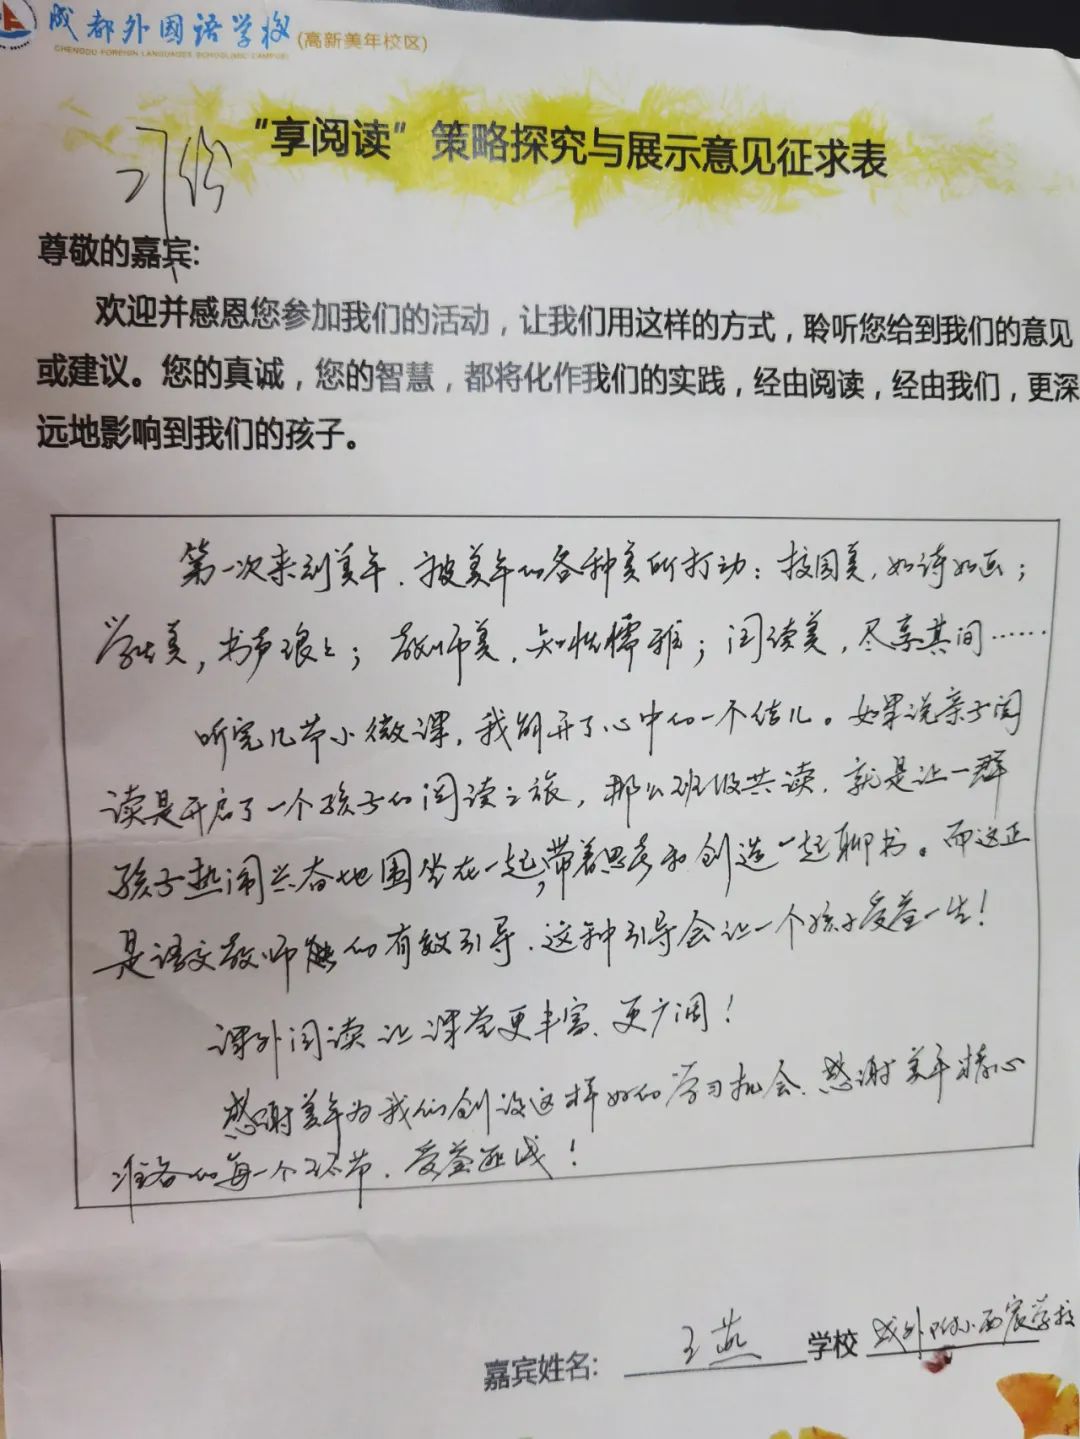 成都外国语学校(高新美年校区)
CHENGDU FOREIGN LANGUAGES SCHOOL(MIC CAMPUS)
“享阅读”策略探究与展示意见征求表
尊敬的嘉宾:
欢迎并感恩您参加我们的活动，让我们用这样的方式，聆听您给到我们的意见
或建议。您的真诚，您的智慧，都将化作我们的实践，经由阅读，经由我们，更深
远地影响到我们的孩子。
第一次来到美年，被美年的各种美所打动：校园美，如诗如画；
学生美，书声琅々；教师美，知性儒雅；阅读美，尽享其间……
听完几节小微课，我解开了心中的一个结儿。如果说亲子阅
读是开启了一个孩子的阅读之旅，那么班级共读，就是让一群
孩子热闹兴奋地围坐在一起，带着思考和创造一起聊书。而这正
是语文教师的有效引导，这种引导会让一个孩子受益一生！
课外阅读让课堂更丰富、更广阔！
感谢美年为我们创设这样好的学习机会，感谢美年精心
准备的每一个环节，受益匪浅！
嘉宾姓名: 王燕 学校 成外附小西宸学校